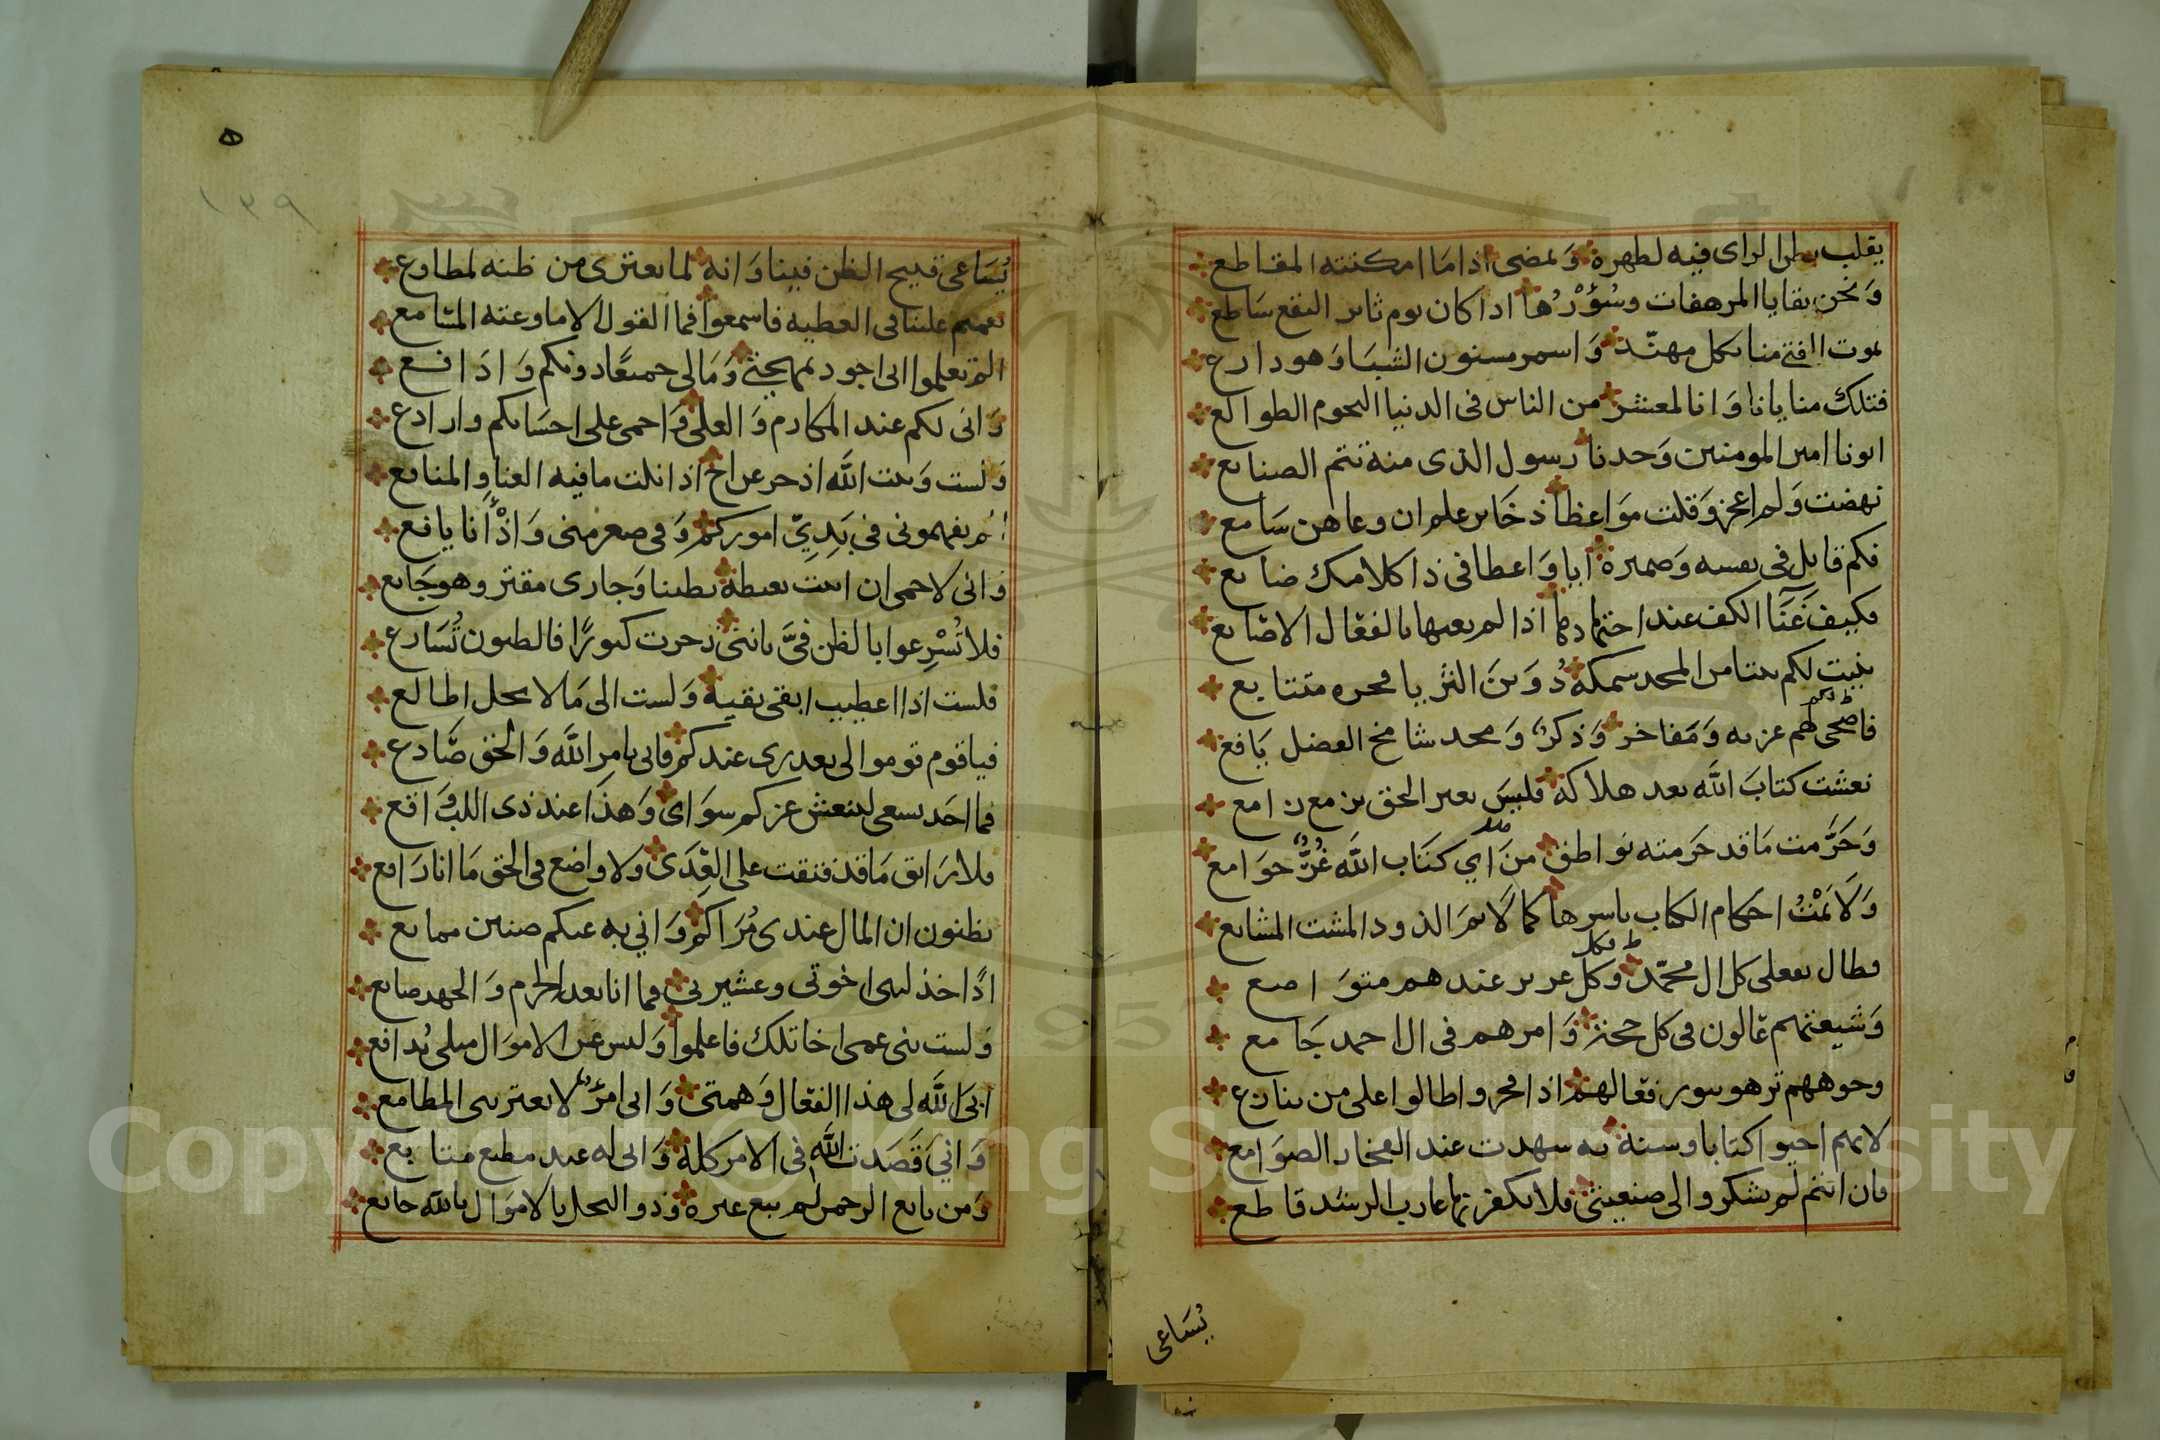 يقلب بطن الراى فيه لظهره وَيمضى اذا مَا امكنته المقاطع
وَنحن بقايا المرهفات وسُؤْرُها اذا كان يوم ثائر النقع سَاطع
يموت الفتى منا بكل مهنّد وَاسمر مسنون الشبَا وَهو دارع
فتلك منايانا وَانا لمعشر من الناس فى الدنيا النجوم الطوالع
ابونا امير المومنين وَجدنا رسول الذى منه تتم الصنايع
نهضت وَلم اعجز وَقلت موَاعظا ذخَاير علم ان وعاهن سَامع
فكم قايل فى نفسه وَضميره
فكيف غَنَآ الكف عند اخترامها اذا لم يعنها بالفعَال الاصَابع
بنيت لكم بيتا من المجد سمكه دُوَينَ الثريا فخره متتايع
فاضحى لكم عز به وَمَفاخر وَذكرٌ وَمجد شامخ الفضل يَافع
نعشت كتابَ الله بعد هلاكه فليسَ بغير الحق يزمع زامع
وَحَرَّمت مَا قد حَرمته نواطق منَ اي كتَاب الله غُرٌّ جوَامع
وَلَاءَمْتُ احكام الكتاب باسرها كما لَاءمَ الذود المشت المشايع
فطال بفعلى كل ال محمّد وكل عزيز عندهم متوَاضع
وَشيعتهم عَالون فى كل حجة وَامرهم فى ال احمد جَامع
وجوههم تزهو بنور فعَالهم اذا فخروا طالوا على من ينازع
لانهم احيوا كتابا وسنة به شهدت عند الفخار الصوَامع
فان انتم لم تشكروا لى صنيعتى فلا تكفرنها يا ربَ الرشد قاطع
يُسَاعى
٥
١٣٩
يُسَاعى قبيح الظن فينا وَانه لما يعترى من ظنه لمطاوع
نعمتم علينا فى العطيه فاسمعوا فما القول الا ما وعته المسَامع
الم تعلموا انى اجود بمهجتى وَمَالى جميعًا دونكم وَادَافع
وَانى لكم عند المكارم وَالعلى وَاحمى على احسَابكم واراد ع
وَلست وَبيت الله اذخر عن اخ اذا نلت ما فيه الغنا وَالمنافع
الم تفهمونى فى بَدِيِّ اموركم وَفى صغر منى وَاذْ انا يافع
وَانى لاحمى ان ابيت بغبطة بطينا وَجارى مقتر وهو جَايع
فلا تُسْرِعوا بالظن فىَّ باننى ذخرت كنوزًا فالظنون تُسَارع
فلست اذا اعطيت ابقى بقيه وَلست الى مَا لا يحل اطالع
فيا قوم قوموا لى بعذرى عندكم فانى بامر الله وَالحق صَادع
فما احَد يسعى لينعش عزكم سوَاى وَهذا عند ذى اللب وَاقع
فلا رَاتق مَا قد فتقت على العِدَى ولا واضع فى الحق مَا انا رَافع
يظنون ان المال عندى مُرَاكم وَاني به عنكم ضنين ممانع
اذًا خذلتنى اخوتى وعشيرتي فما انا بعد الحزم وَالجهد صانع
وَلست بنى عمى اخا تلك فاعلموا وَليس عن الاموَال مثلى يُدافع
ابَى الله لى هذا الفعَال وَهمتى وَانى امرؤٌ لا تعترينى المطامع
وَانيَ قَصَدت الله فى الامر كله وَانى له عبد مطيع متابع
وَمن بايع الرحمن لم يبع غيره وَذو البخل بالاموَال بالله خانع
Copyright © King Saud University